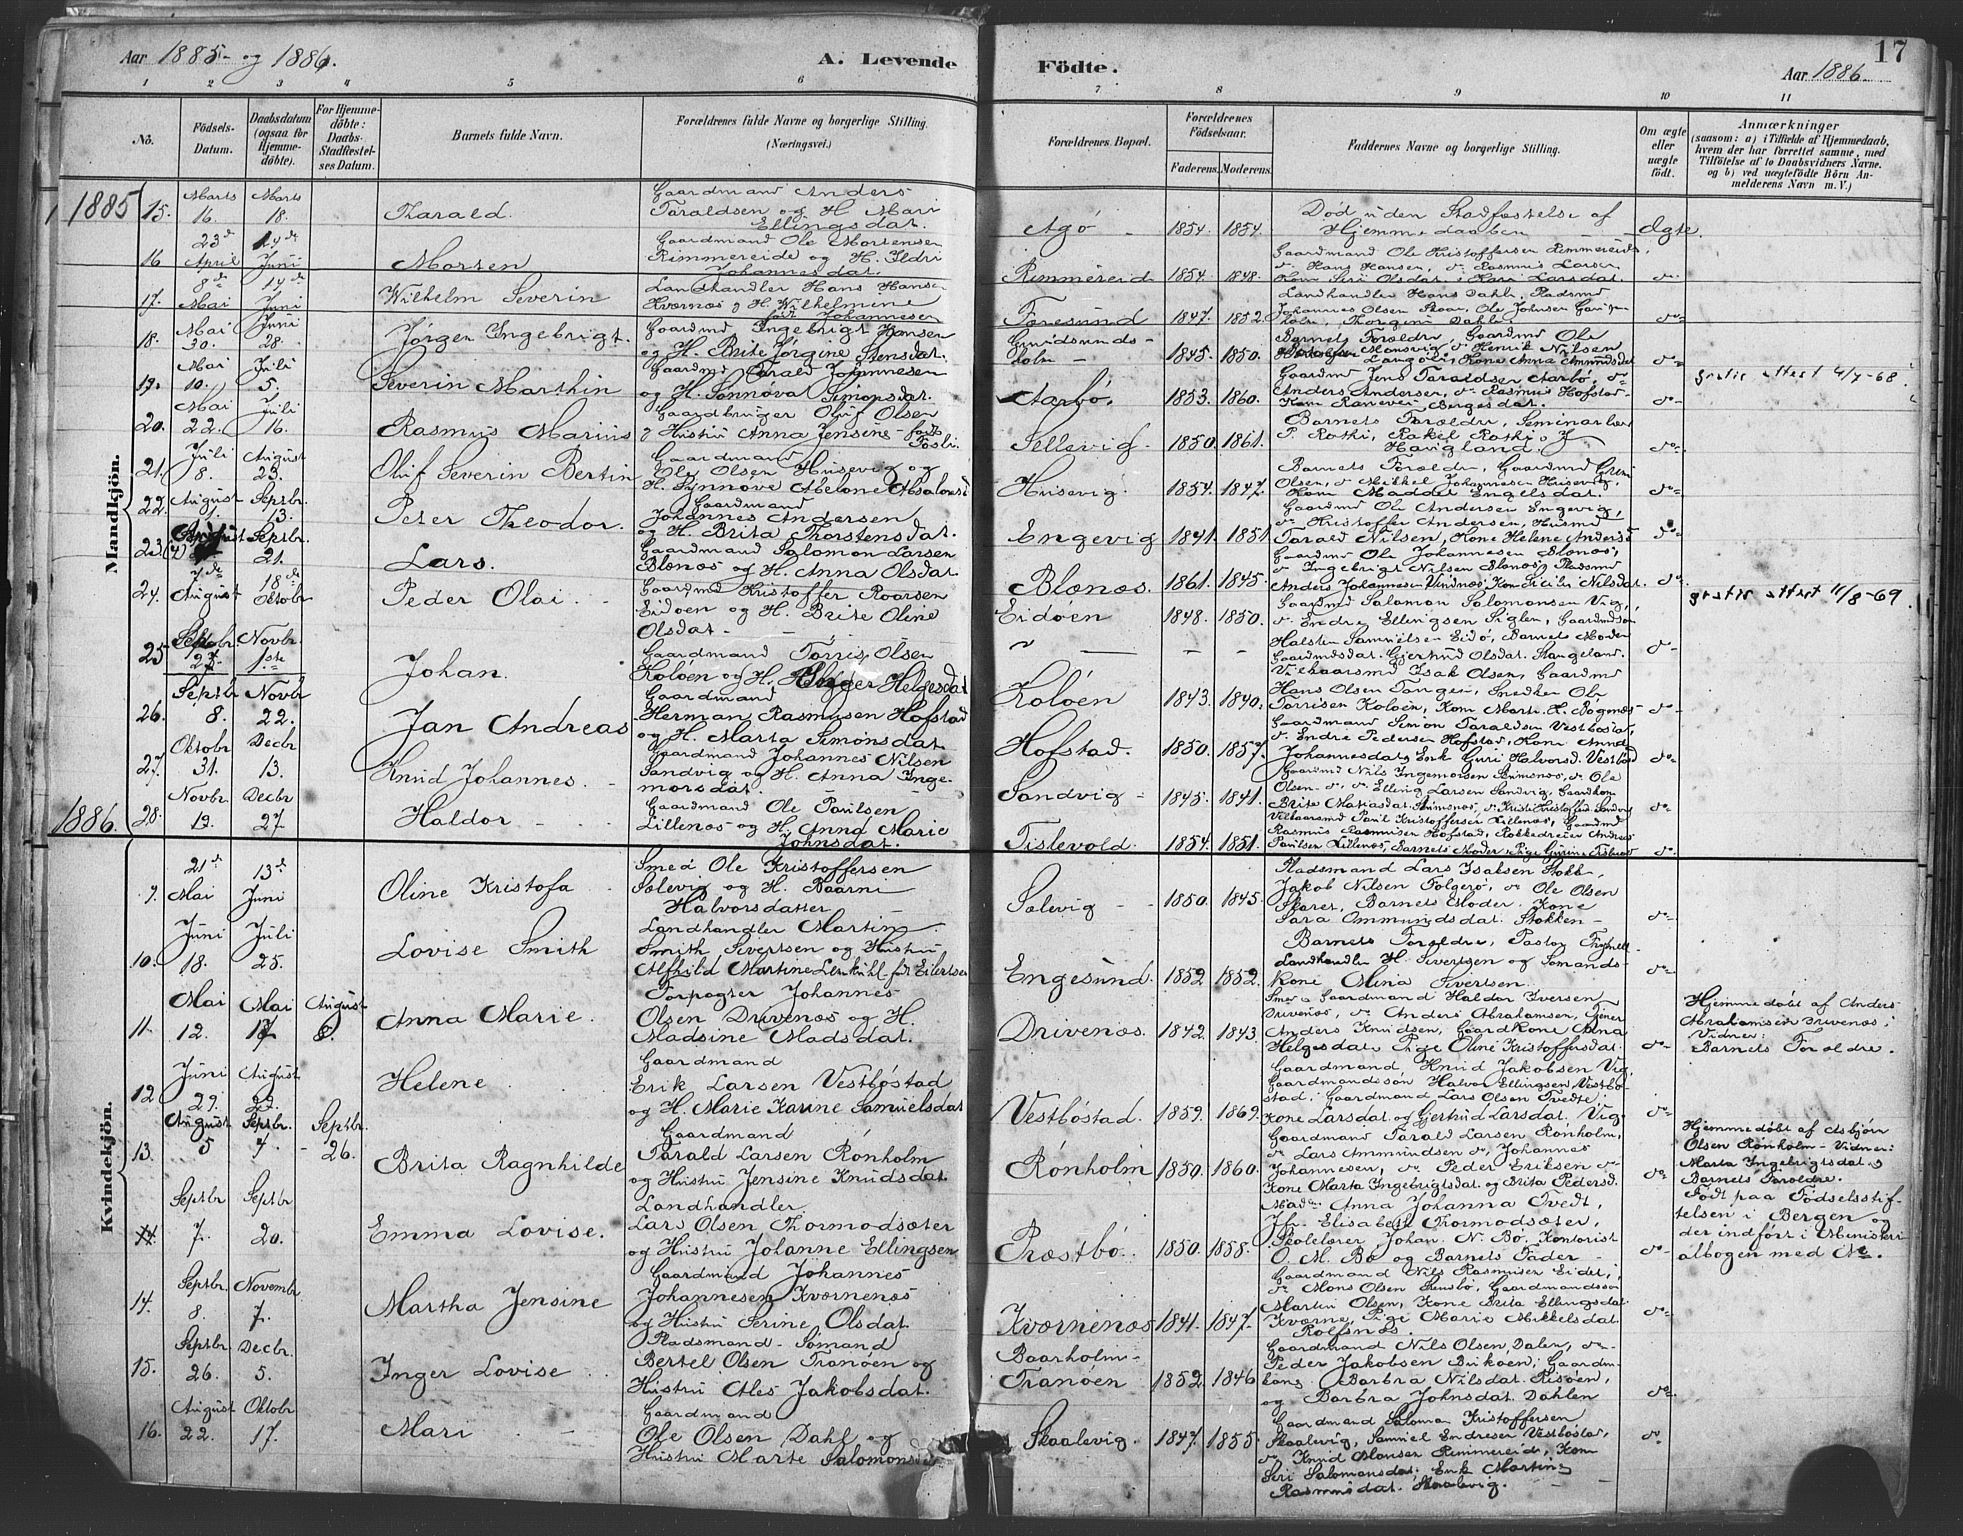 Aar 1885 og 1886.
A. Levende Födte.
17
Aar 1886
1 2 3 4 5 6 7 8 9 10 11
No.
Födsels-Datum.
Daabsdatum (ogsaa for Hjemmedöbte).
For Hjemmedöbte: Daabs-Stadfæstelses Datum.
Barnets fulde Navn.
Forældrenes fulde Navne og borgerlige Stilling. (Næringsvei.)
Forældrenes Bopæl.
Forældrenes Födselsaar.
Faderens. Moderens.
Faddernes Navne og borgerlige Stilling.
Om ægte eller uægte födt.
Anmærkninger
(saasom: a) i Tilfælde af Hjemmedaab, hvem der har forrettet samme, med Tilföielse af to Daabsvidners Navne. og b) ved uægtefödte Börn Anmelderens Navn m. V.)
Mandkjön.
1885
15. Marts 16. Marts 18. Tharald. Gaardmand Anders Taraldsen og H. Mari Ellingsdat. Agö 1854. 1854. Död uden Stadfæstelse af Hjemmedaaben Ægte.
16 23de April 14de Juni Morten Gaardmand Ole Mortensen Rimmereide og H. Ildri Johannesdat. Rimmereid 1854. 1848. Gaardmand Ole Kristoffersen Rimmereide, do Hans Hansen, do Rasmus Larsen, Kone Siri Olsdat, Kari Larsdat. do
17. 8de Mai 14de Juni Wilhelm Severin Landhandler Hans Hansen Kværnæs og H. Wilhelmine född Johannesen Foresund 1847. 1852. Landhandler Hans Dahle, Pladsmd Johannes Olsen Skaar, Ole Johnsen do
18. Mai 30. Juni 28. Jörgen Ingebrigt. Gaardmd Ingebrigt Hansen og H. Brite Jörgine Stensdat. Gauidsundsholm 1845. 1850. Barnets Forældre, Gaardmd Ole do Henrik Nilsen Kone Anna Amundsdat do
19. Mai 10. Juli 5. Severin Marthin Gaardmd Tarald Johannesen og H. Sönnöva Simonsdat. Aarbö. 1853. 1860. Gaardmd Jens Taraldsen Aarbö, do Anders Andersen, do Rasmus Hofstad Kone Ranevei Bergesdat. do gratis attest 4/7-68
20. Mai 22. Juli 16. Rasmus Marius Gaardbruger Oluf Olsen og Hustru Anna Jensine Sellevig 1850. 1861. Barnets Forældre, Seminarlærer P. Rothi, Rakel Rothi, J. Havigland. do
21. Juli 8. August 23. Oluf Severin Bertin Gaardmand Ole Olsen Husevig og H. Synnöve Abelone Absalonsd Husevig. 1854. 1847. Barnets Forældre, Gaardmd Olsen, do Mikkel Johannesen Husevig, Kone Madde Engelsdat. do
22. August 1. Septbr. 13. Peter Theodor. Gaardmand Johannes Andersen og H. Brita Thorstensdat. Engevig 1841. 1851. Gaardmd Ole Andersen Engevig, do Kristoffer Andersen, Husmd Tarald Nilsen, Kone Helene Andersd do
23. August Septbr. 21. Lars. Gaardmand Salomon Larsen Blænæs og H. Anna Olsdat. Blænæs. 1861. 1845. Gaardmd Ole Johannesen Blænæs, do Ingebrigt Nilsen Blænæs, Pladsmd Anders Johannesen Vindnæs, Kone Nilsdat. do
24. 7de August 18de Oktobr Peder Olai Gaardmd Kristoffer Roarsen Eidöen og H. Brite Oline Olsdat Eidöen 1848. 1850. Gaardmd Salomon Salomonsen Vig, do Endre Ellingsen Siglen, Gaardmdsön Halstein Samuelsen Eidö, Barnets Moder, Gaardmdsdat. Gjertrud Olsdat. Stangeland. do gratis attest 11/8-69
25 Septbr. 27. Novbr. 1ste Johan. Gaardmand Torris Olsen Kolöen og H. Inger Helgesdat Kolöen 1843. 1840. Vilkaarsmd Isak Olsen, Gaardmd Hans Olsen Tangen, Snedker Ole Torrisen Kolöen, Kone do
26. Septbr 8. Novbr 22. Jan Andreas Gaardmand Herman Rasmusen Hofstad og H. Marta Simonsdat. Hofstad. 1850. 1857. Gaardmand Simon Taraldsen Vestbostad, do Endre Pedersen Hofstad, Kone Anna Johannesdat, Enk Guri Halvorsd. Vestbostad do
27. Oktobr 31. Decbr 13. Knud Johannes Gaardmand Johannes Nilsen Sandvig og H. Anna Ingemorsdat. Sandvig 1845. 1841. Gaardmd Nils Ingemorsen, do Ole Olsen do, do Elling Larsen Sandvig, Gaardkone do
1886.
28. Novbr. 19. Decbr 27 Haldor Gaardmand Ole Paulsen Lillenæs og H. Anna Marie Johnsdat. Tislevold. 1854. 1851. Vilkaarsmd Paul Kristoffersen Lillenæs, Gaardmd Rasmus Rasmusen Hofstad, Andreas Paulsen Lillenæs, Barnets Moder, Pige do
Kvindekjön.
9. 21de Mai 13de Juni Oline Kristofa Smed Ole Kristoffersen Sælevig og H. Baarni Halvorsdatter Sælevig 1850. 1845. Pladsmand Lars Isaksen Stokk, Jakob Nilsen Folgerö, do Ole Olsen Skaret, Barnets Moder, Kone Sara Ommundsdat. Stokken do
10. Juni 18. Juli 25. Lovise Smith Landhandler Martin Smith Sivertsen og Hustru Alfhild Martine Lerkuhl f. Eilertsen Engesund. 1852 1852. Barnets Forældre, Pastor Landhandler H. Sivertsen og Sömands-Kone Olina Sivertsen. do
11. Mai 12. Mai 17. August 8. Anna Marie. Torpagter Johannes Olsen Drivenæs og H. Madsine Madsdat. Drivenæs. 1842. 1843. Smed og Gaardmand Haldor Iversen Drivenæs, do Anders Abrahamsen, Anders Knudsen, Gaardkone Anna Helgesdat, Pige Oline Kristoffersdat. do Hjemmedöbt af Anders Abrahamsen Drivenæs; Vidner: Barnets Forældre.
12 Juni 29. August 22. Helene Gaardmand Erik Larsen Vestböstad og H. Marie Karine Samuelsdat Vestböstad. 1859. 1869. Gaardmand Knud Jakobsen Vig, Gaardmandssön Halvor Ellingsen Vestböstad, Gaardmand Lars Olsen Tvedte, Kone Larsdat og Gjertrud Larsdat. Vig. do
13. August 5 Septbr. 7. Septbr. 26. Brita Ragnhilde Gaardmand Tarald Larsen Rönholm og Hustru Jensine Knudsdat. Rönholm 1850. 1860. Gaardmand Tarald Larsen Rönholm, do Lars Ammundsen do, Johannes Johannesen, do Peder Eriksen do Kone Marta Ingebrigtsdat. og Brita Pedersd. do Hjemmedöbt af Asbjörn Olsen Rönholm - Vidner: Marta Ingebrigtsdat. og Barnets Forældre.
Septbr 7. Septbr 20. Emma Lovise. Landhandler Lars Olsen Thormodsæter og Hustru Johanne Ellingsen Præstbö. 1850. 1858. Madm Anna Johanna Tvedt, Jfr. Elisabeth Thormodsæter, Skolelærer Johan N. Bö, Kontorist O. M. Bö og Barnets Fader do Födt paa Födselsstiftelsen i Bergen og der indfört i Ministerialbogen med No.
14. Septbr. 8. Novembr. 7. Martha Jensine Gaardmand Johannes Johannesen Kværnenæs og Hustru Serine Olsdat. Kværnenæs 1841. 1847. Gaardmand Nils Rasmusen Eidet, do Mons Olsen, Gaardmandssön Martin Olsen, Kone Brita Ellingsdat Kværne, Pige Marie Mikkelsdat Rolfsnæs. do
15. Septbr. 26. Decbr. 5. Inger Lovise Pladsmand - Sömand Bertel Olsen Tranöen og Hustru Ales Jakobsdat. Baarholm-Tranöen 1852. 1846 Gaardmand Nils Olsen Dalen, do Peder Jakobsen, Gaardm kone Barbra Nilsdat. Risöen, og Barbra Johnsdat. Dahlen do
16. August 22. Oktobr 17. Mari Gaardmand Ole Olsen Dahl og Hustru Marte Salomonsd Skaalevig. 1847. 1855. Gaardmand Salomon Kristoffersen Skaalevig, Samuel Endresen Vestböstad, do Knud Monsen Rimmereid, Kone Siri Salomonsdat. Enk Martine Rasmusdat. Skaalevig. do